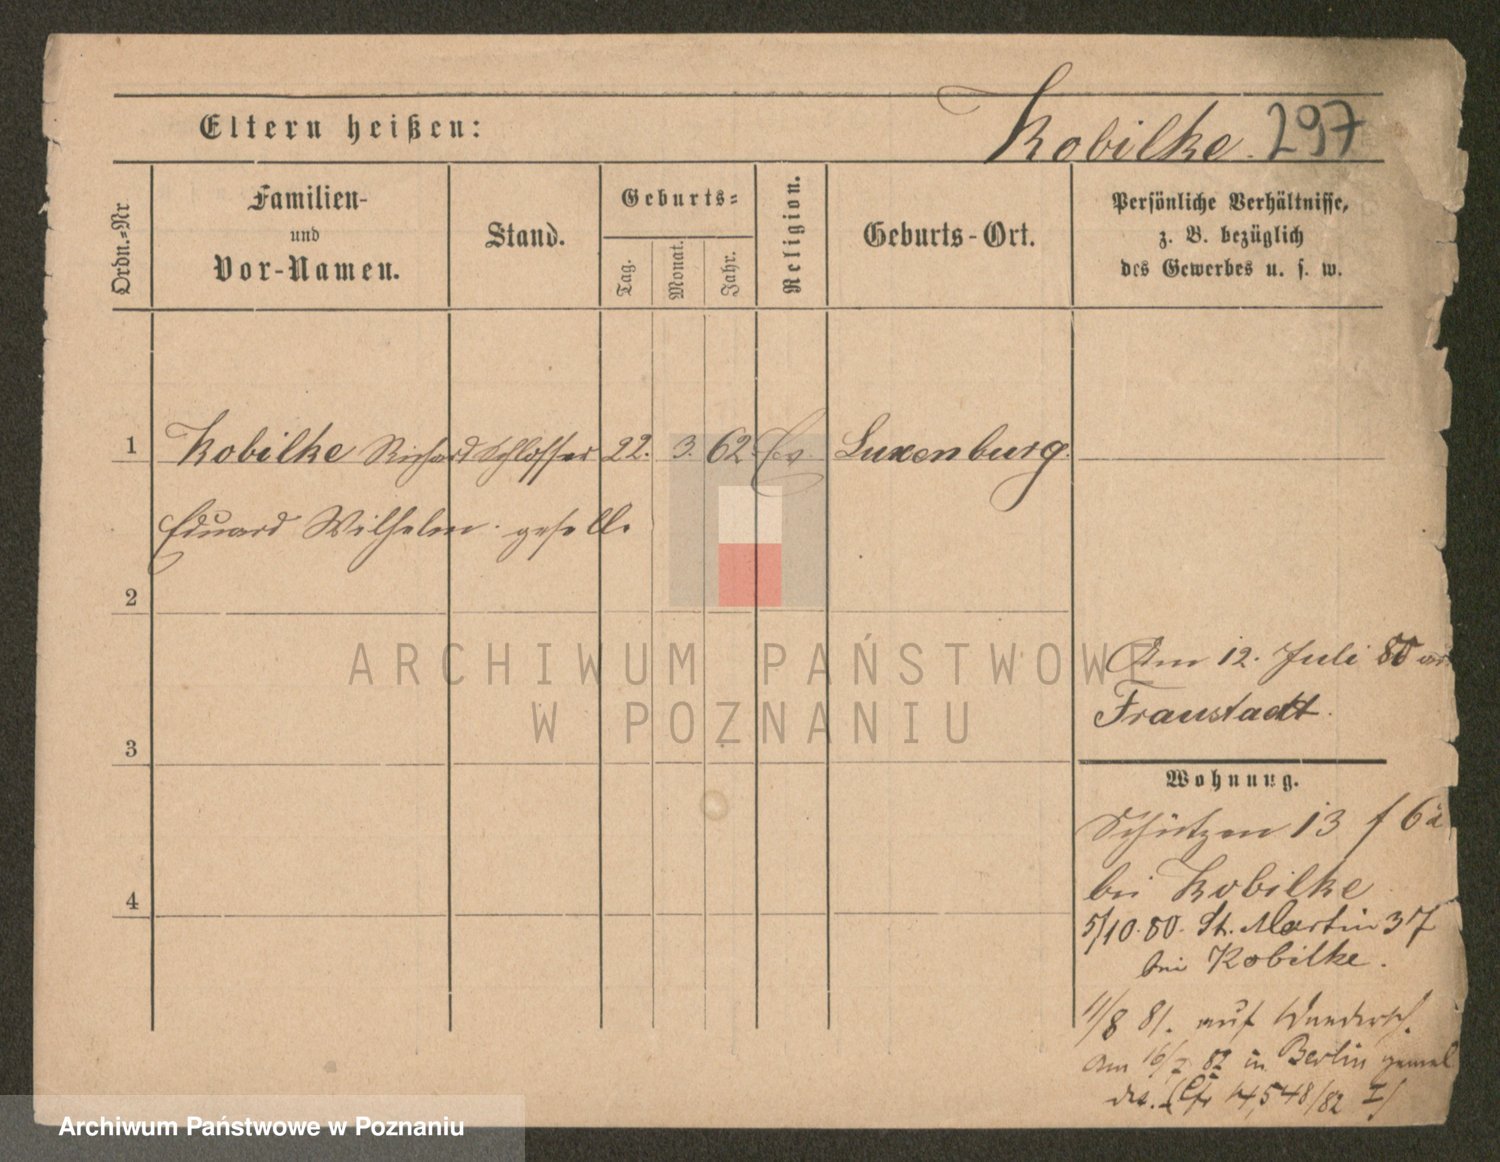 Eltern heißen:
Kobilke. 297
Ordn.=Nr
Familien-
und
Vor-Namen.
Stand.
Geburts=
Tag.
Monat.
Jahr.
Religion.
Geburts-Ort.
Persönliche Verhältnisse,
z. B. bezüglich
des Gewerbes u. s. w.
1 Kobilke Richard Schlosser 22. 3. 62 Ev. Luxenburg.
Eduard Wilhelm gesell.
2
ARCHIWUM PAŃSTWOWE
W POZNANIU
Am 12. Juli 80
Fraustadt.
3
Wohnung.
Schützen 13
bei Kobilke
4
5/10. 80. St. Martin 37
bei Kobilke.
11/8 81. auf Wandersch.
Am 16/I 82 in Berlin gemel
det. 14,548/82 I
Archiwum Państwowe w Poznaniu